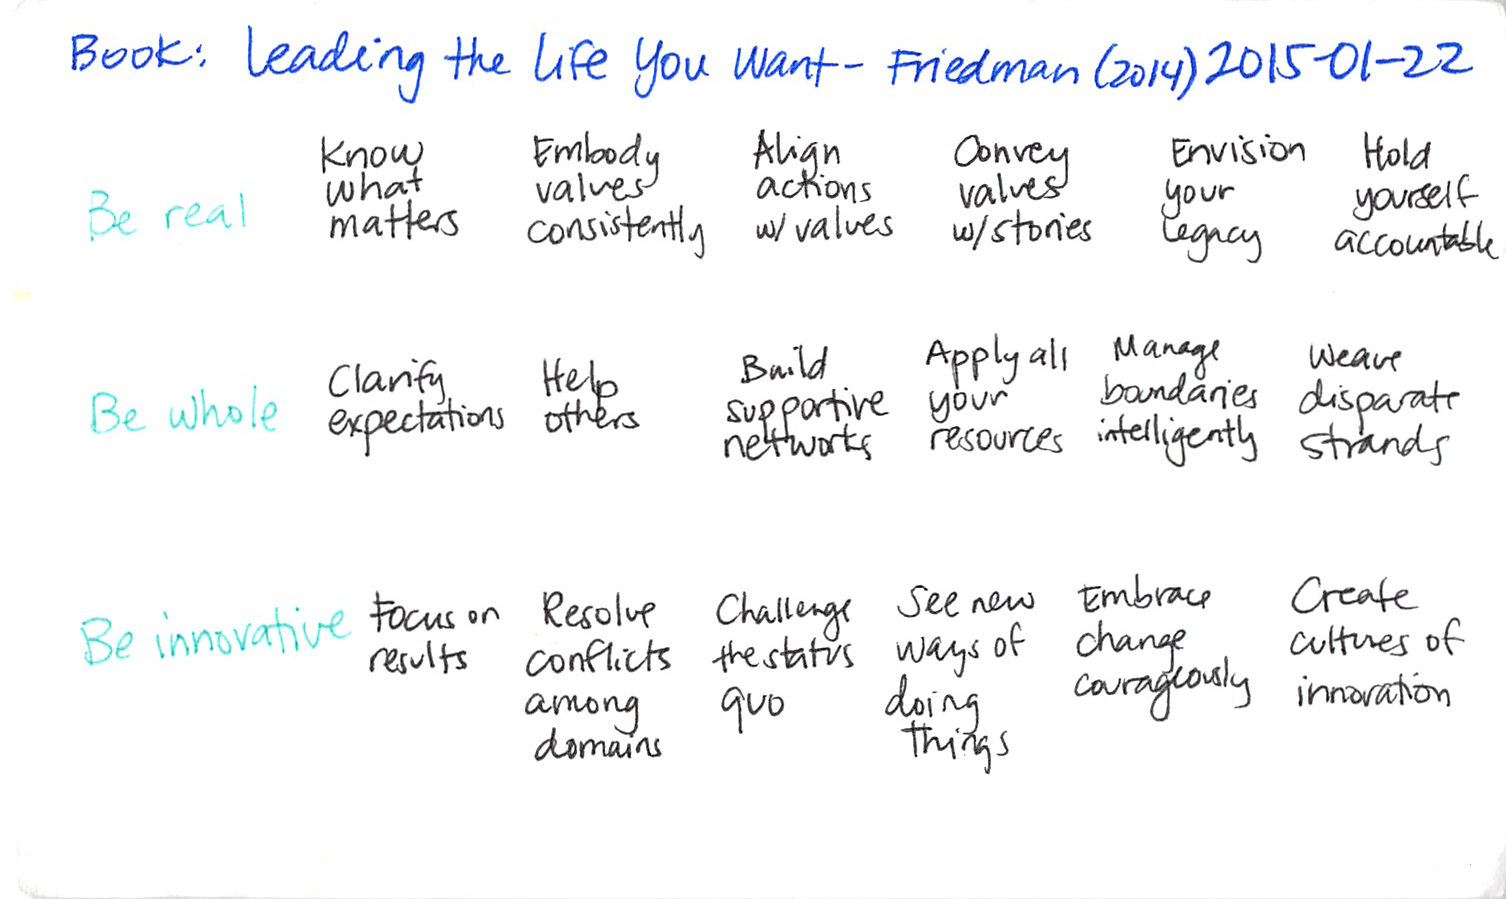 Book: Leading the Life You Want - Friedman (2014) 2015-01-22
Be real
Know
what
matters
Embody
values
consistently
Align
actions
w/ values
Convey
values
w/stories
Envision
your
legacy
Hold
yourself
accountable
Be whole
Clarify
expectations
Help
others
Build
supportive
networks
Apply all
your
resources
Manage
boundaries
intelligently
Weave
disparate
strands
Be innovative
Focus on
results
Resolve
conflicts
among
domains
Challenge
the status
quo
See new
ways of
doing
things
Embrace
change
courageously
Create
cultures of
innovation